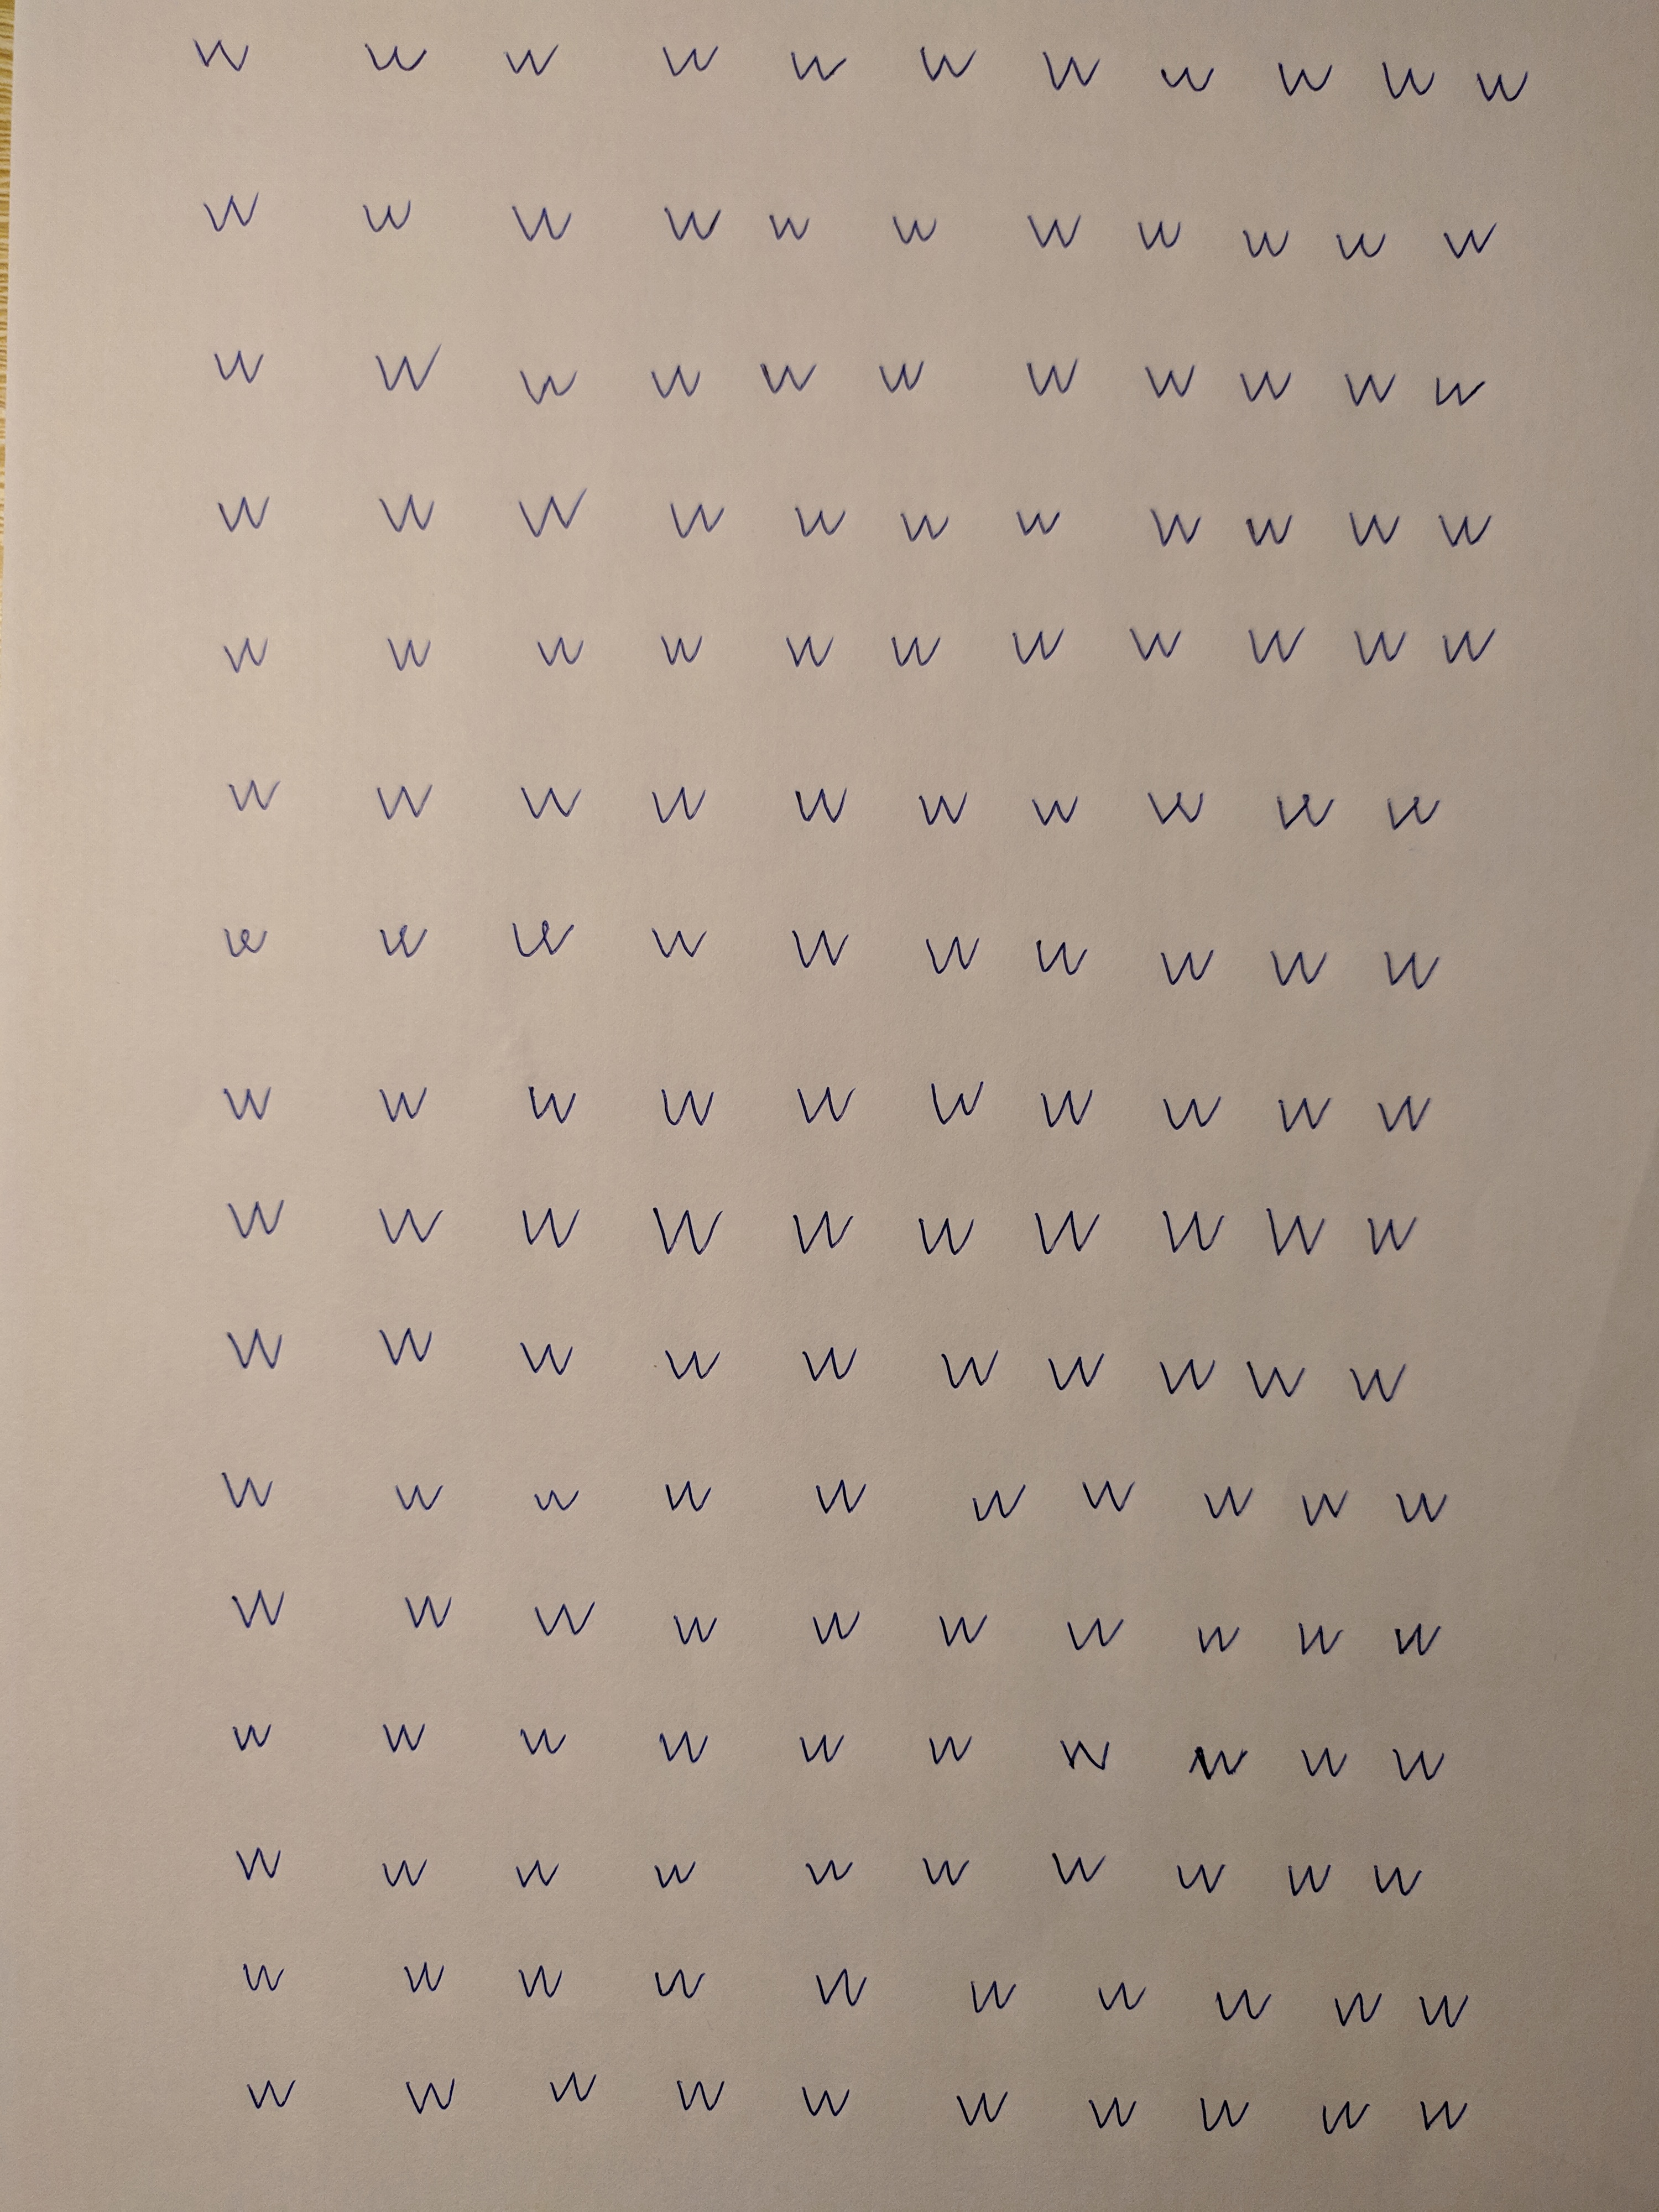 w w w w w w w w w w w
w w w w w w w w w w w
w w w w w w w w w w w
w w w w w w w w w w w
w w w w w w w w w w w
w w w w w w w w w w
w w w w w w w w w w
w w w w w w w w w w
w w w w w w w w w w
w w w w w w w w w w
w w w w w w w w w w
w w w w w w w w w w
w w w w w w w w w w
w w w w w w w w w w
w w w w w w w w w w
w w w w w w w w w w